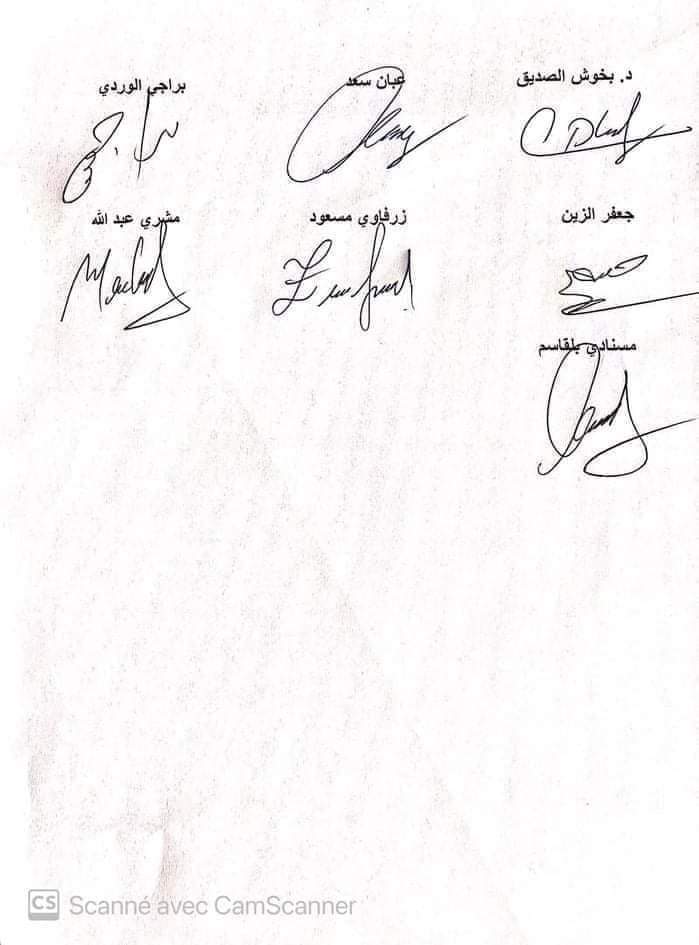 د. بخوش الصديق
عبان سعد
براجي الوردي
جعفر الزين
زرفاوي مسعود
مشري عبد الله
مسنادي بلقاسم
CS Scanné avec CamScanner